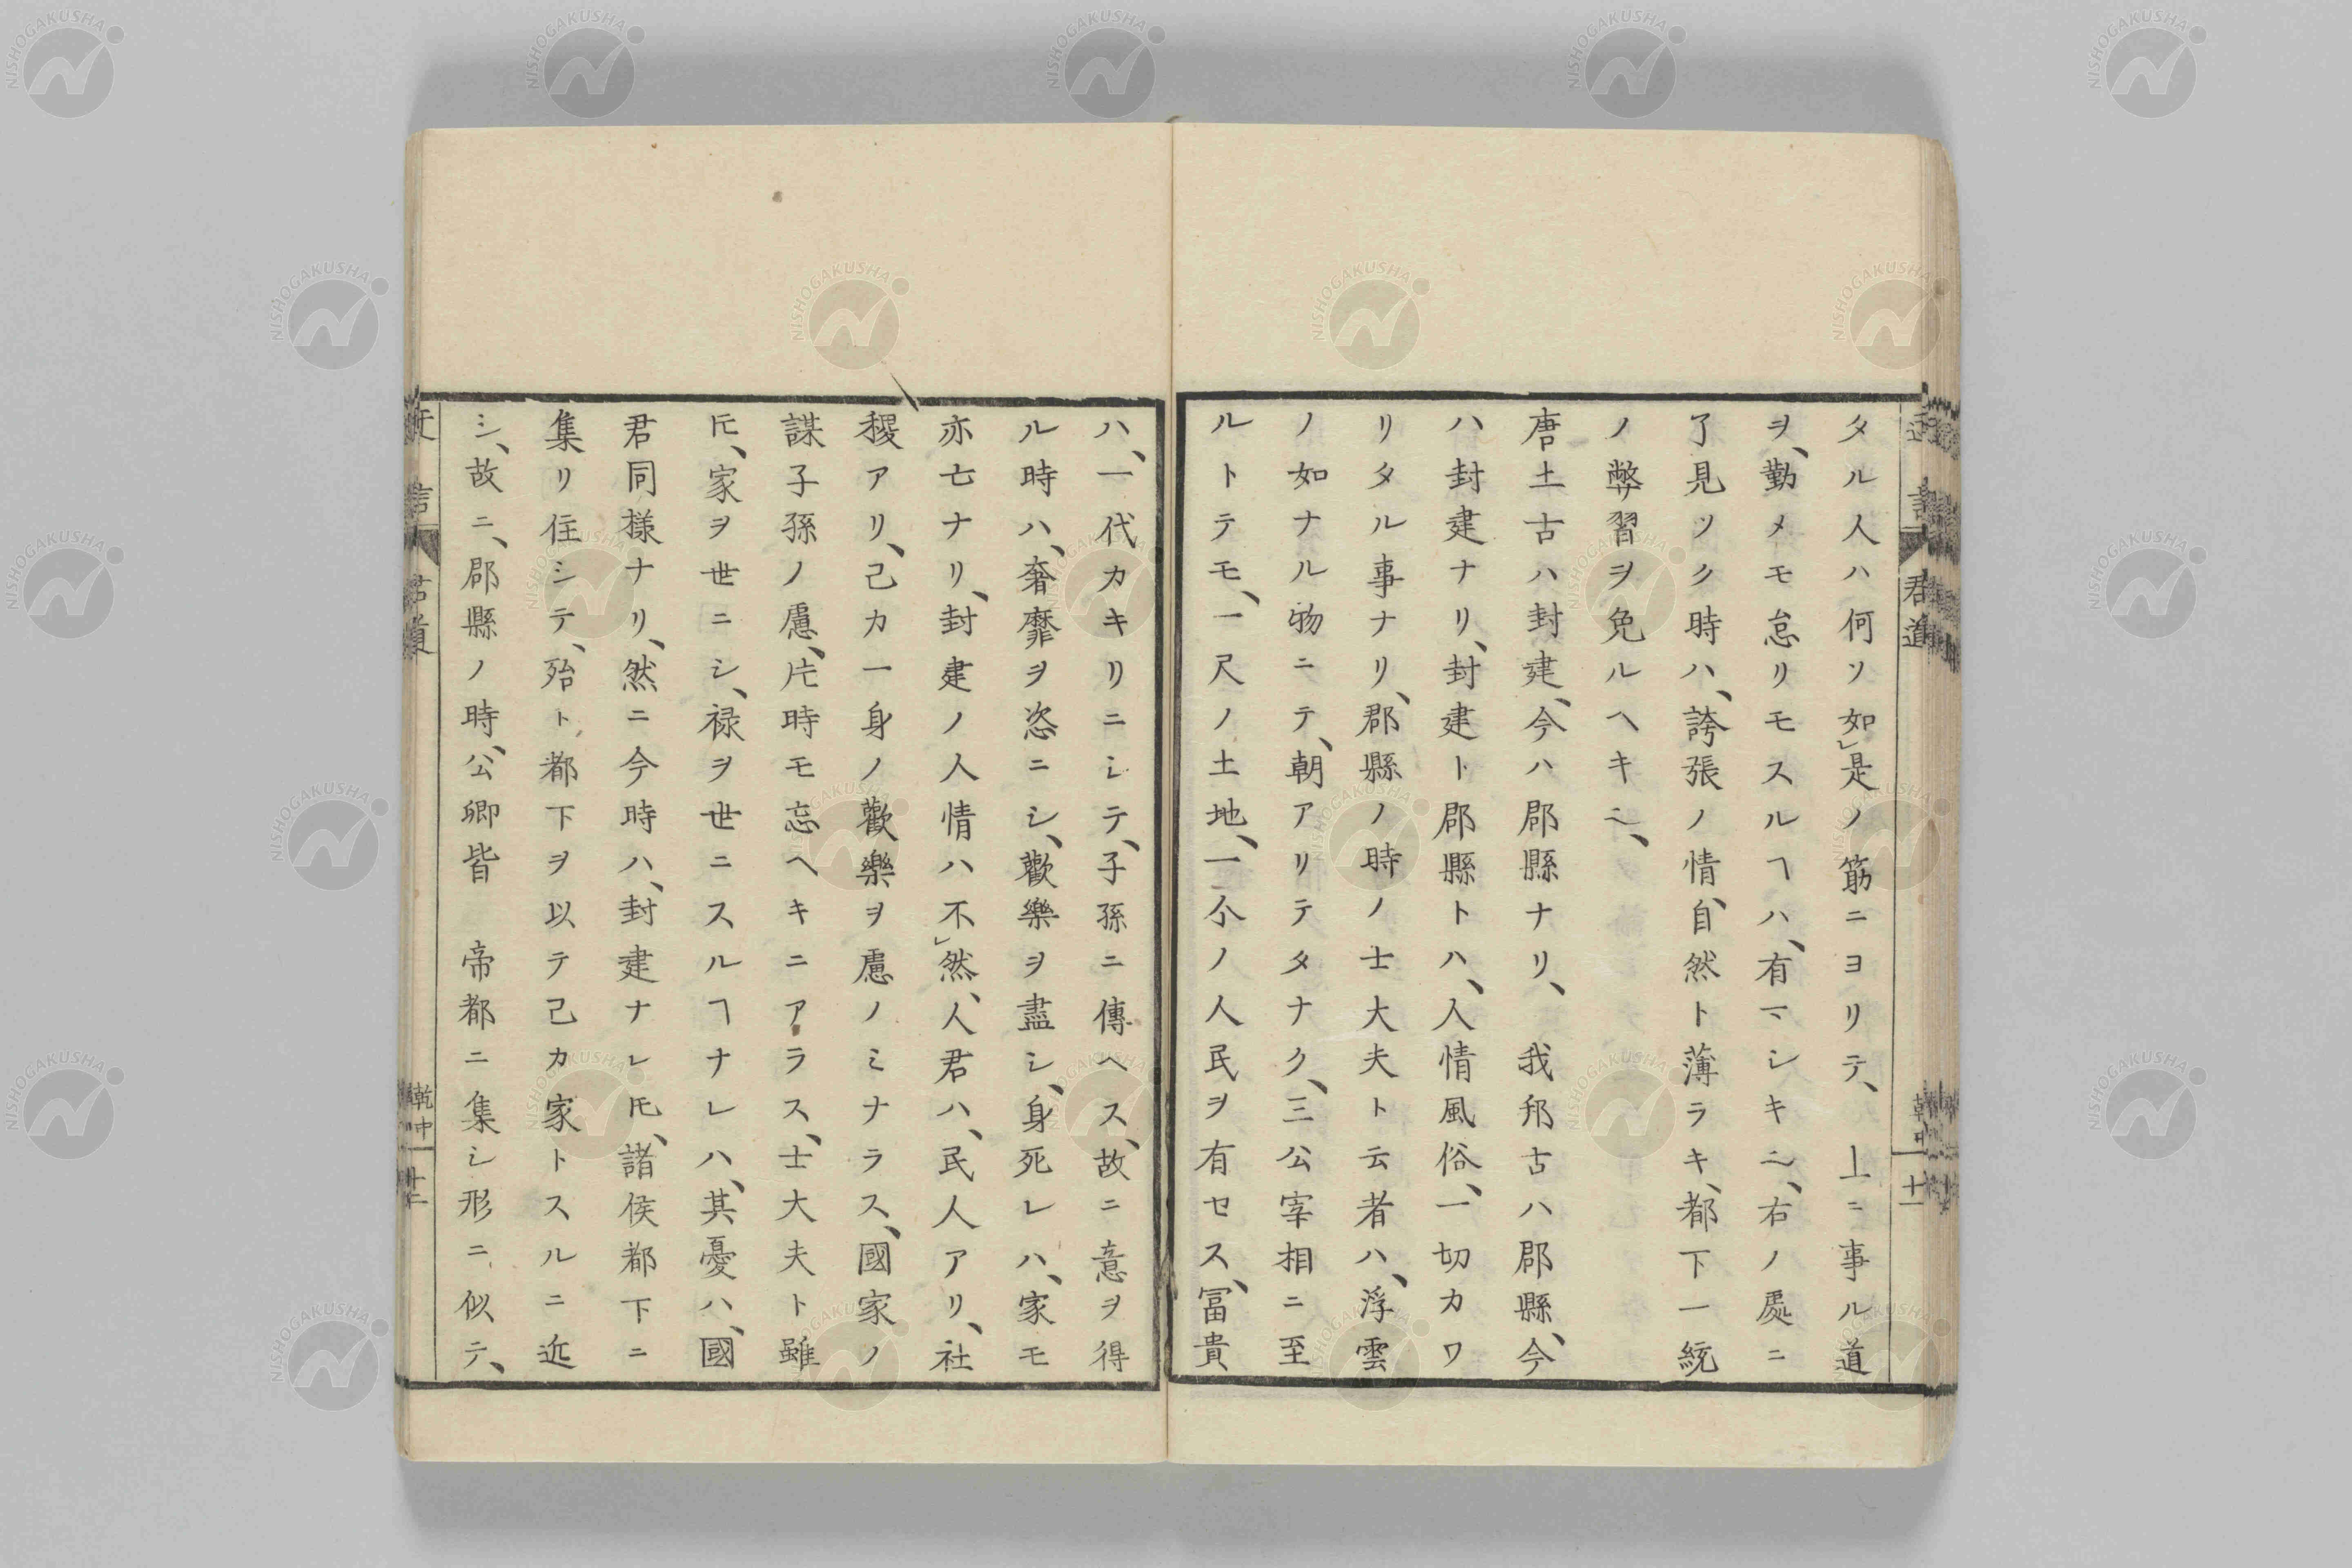 タル人ハ何ソ如㆑是ノ筋ニヨリテ、　上ニ事ル道
ヲ、勤メモ怠リモスルヿハ、有マシキニ、右ノ處ニ
了見ツク時ハ、誇張ノ情、自然ト薄ラキ、都下一統
ノ弊習ヲ免ルヘキニ、
唐土古ハ封建、今ハ郡縣ナリ、　我邦古ハ郡縣、今
ハ封建ナリ、封建ト郡縣トハ、人情風俗、一切カワ
リタル事ナリ、郡縣ノ時ノ士大夫ト云者ハ、浮雲
ノ如ナル物ニテ、朝アリテタナク、三公宰相ニ至
ルトテモ、一尺ノ土地、一个ノ人民ヲ有セス、冨貴
ハ、一代カキリニシテ、子孫ニ傳ヘス、故ニ意ヲ得
ル時ハ、奢靡ヲ恣ニシ、歡樂ヲ盡シ、身死レハ、家モ
亦亡ナリ、封建ノ人情ハ不㆑然、人君ハ、民人アリ、社
稷アリ、己カ一身ノ歡樂ヲ慮ノミナラス、國家ノ
謀子孫ノ慮、片時モ忘ヘキニアラス、士大夫ト雖
𪜈、家ヲ世ニシ、禄ヲ世ニスルヿナレハ、其憂ハ、國
君同様ナリ、然ニ今時ハ、封建ナレ𪜈、諸侯都下ニ
集リ住シテ、殆ト都下ヲ以テ己カ家トスルニ近
シ、故ニ、郡縣ノ時、公卿皆　帝都ニ集シ形ニ似テ、
君道
乾中
十一